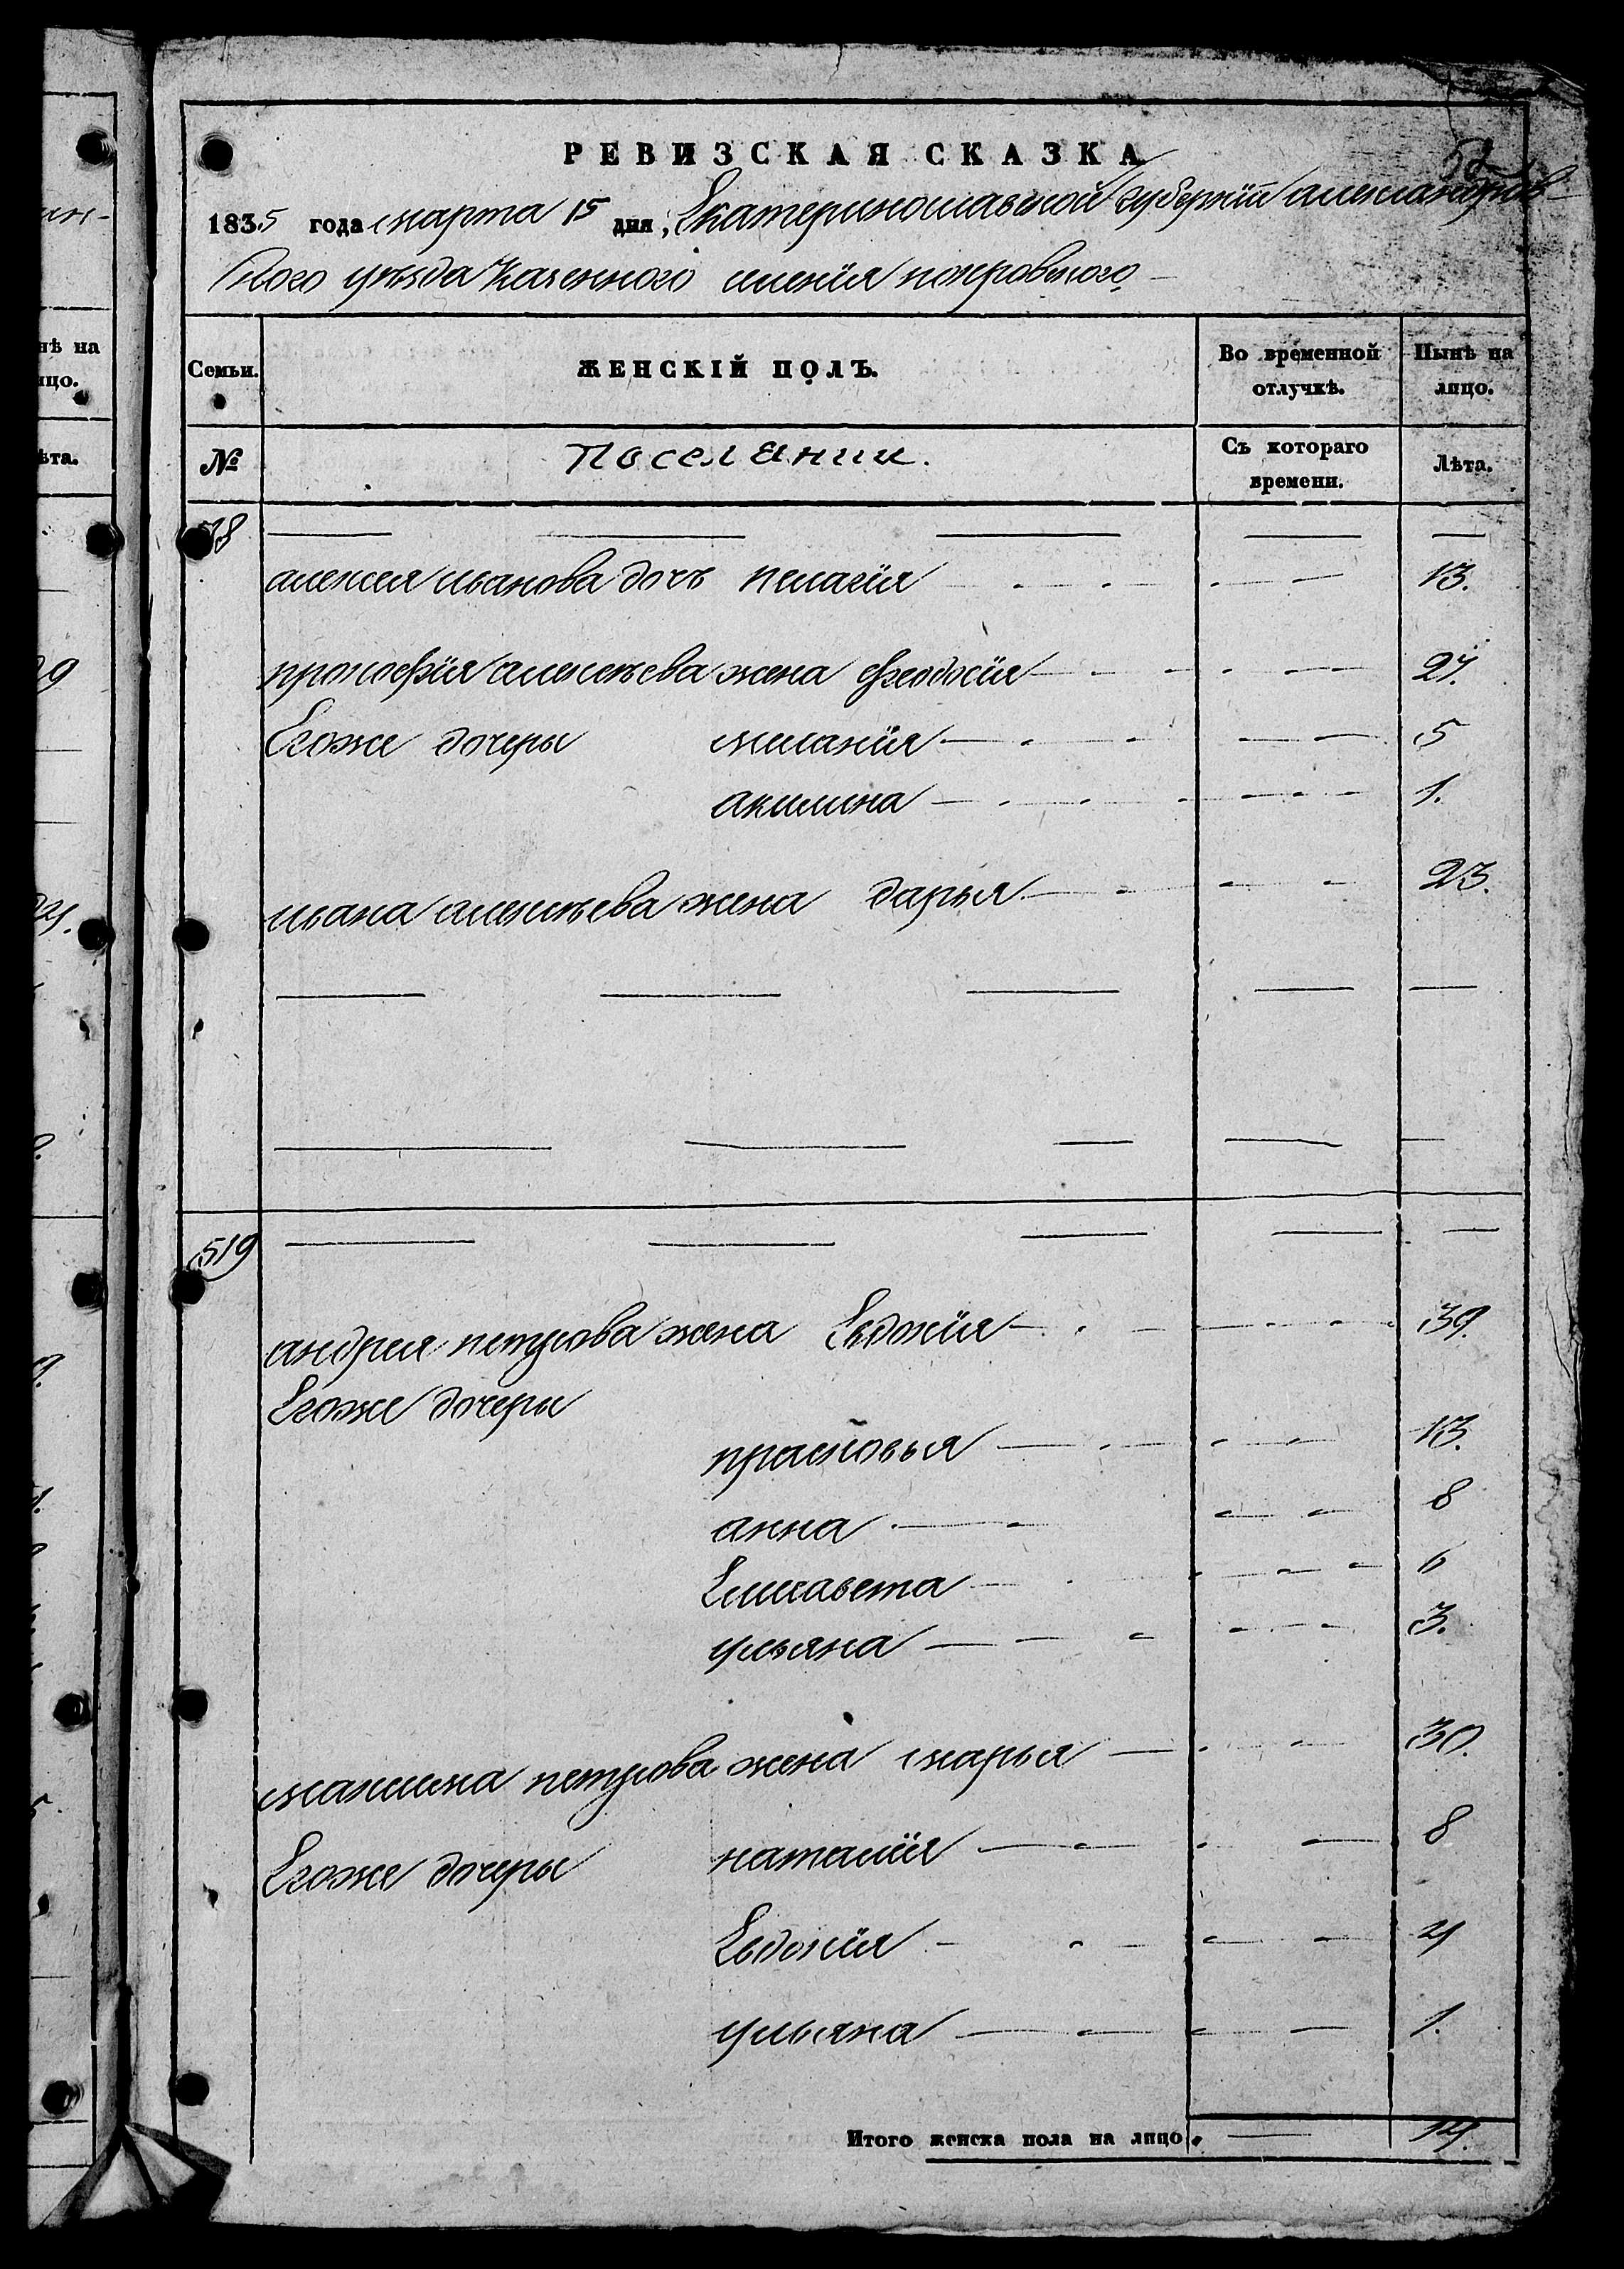 РЕВИЗСКАЯ СКАЗКА
52
1835 года марта 15 дня, Екатеринославской губернiи александров-
ского уѣзда Казенного селенiя покровского
Семьи.
ЖЕНСКIЙ ПОЛЪ.
Во временной отлучкѣ.
Нынѣ на лицо.
№
Поселянии.
Съ котораго времени.
Лѣта.
алексея иванова дочь пелагiя 13.
прокофiя алексѣева жена феодосiя 24.
Егоже дочеры меланiя 5
акилина 1.
ивана алексѣева жена дарья 23.
519
андрея петрова жена Евдокiя 39.
Егоже дочеры
прасковья 13.
анна 8
Елисавета 6
ульяна 3.
максима петрова жена марья 30.
Егоже дочеры наталiя 8
Евдокiя 4
ульяна 1.
Итого женска пола на лицо. 14.
нѣ на
ицо.
ѣта.